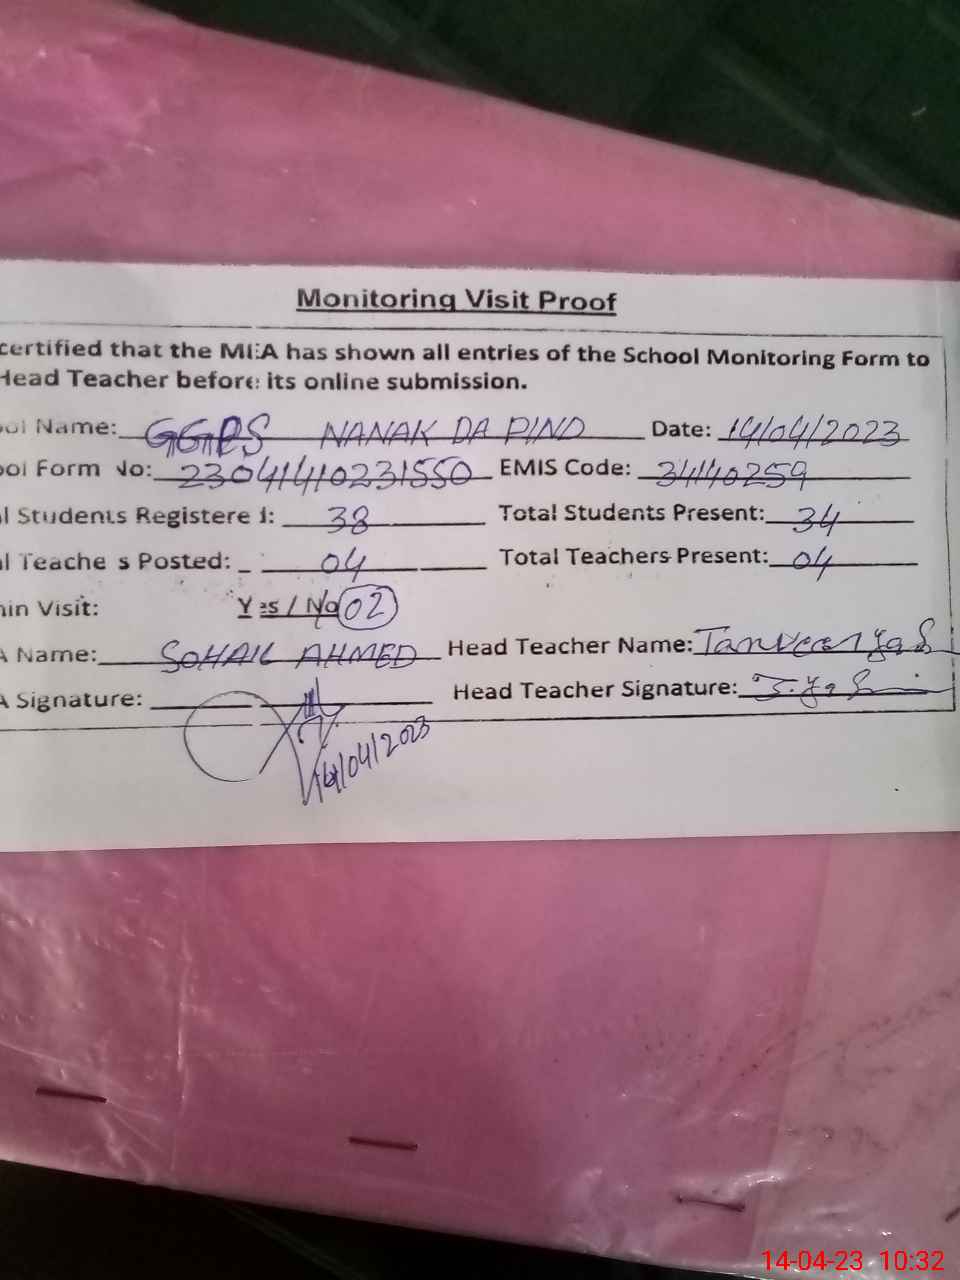 Monitoring Visit Proof
certified that the MEA has shown all entries of the School Monitoring Form to
Head Teacher before its online submission.
ool Name: GGPS NANAK DA PIND Date: 14/04/2023
ool Form No: 23041410231550 EMIS Code: 34140259
l Students Registered: 38 Total Students Present: 34
l Teachers Posted: 04 Total Teachers Present: 04
min Visit: Yes / No 02
A Name: SOHAIL AHMED Head Teacher Name: Tanveer
A Signature: Head Teacher Signature:
14/04/2023
14-04-23 10:32